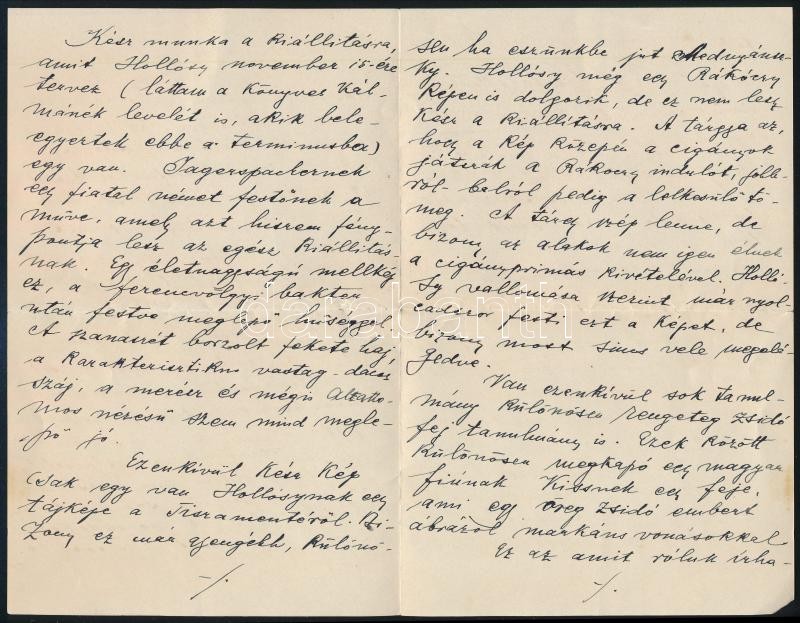 Kész munka a kiállításra,
amit Hollósy november 15-ére
tervez (láttam a Könyves Kál-
mánék levelét is, akik bele-
egyeztek ebbe a terminusba)
egy van. Jagerspachernek
egy fiatal német festőnek a
műve, amely azt hiszem fény-
pontja lesz az egész kiállítás-
nak. Egy életnagyságú mellkép
ez, a ferencvölgyi bakter
után festve meglepő hűséggel.
A panasét borzolt fekete haj,
a karakterisztikus vastag dacos
száj, a merész és mégis
mos nézésű szem mind megle-
pő jó.
Ezenkívül kész kép
csak egy van Hollósynak egy
tájképe a Tiszamentéről. Bi-
zony ez már gyengébb, különö-
-/.
sen ha eszünkbe jut Mednyánsz-
ky. Hollósy még egy Rákóczy
képen is dolgozik, de ez nem lesz
kész a kiállításra. A tárgya az,
hogy a kép közepén a cigányok
játszák a Rákóczy indulót, jobb-
ról-balról pedig a lelkesülő tö-
meg. A tárgy szép lenne, de
bizony az alakok nem igen élnek
a cigányprimás kivételével. Holló-
sy vallomása szerint már nyol-
cadszor festi ezt a képet, de
bizony most sincs vele megelé-
gedve.
Van ezenkívül sok tanul-
mány különösen rengeteg zsidó
fej tanulmány is. Ezek között
különösen megkapó egy magyar
fiúnak Kissnek egy feje,
ami egy öreg zsidó embert
ábrázol markáns vonásokkal
Ez az amit róluk írha-
-/.
darabanth